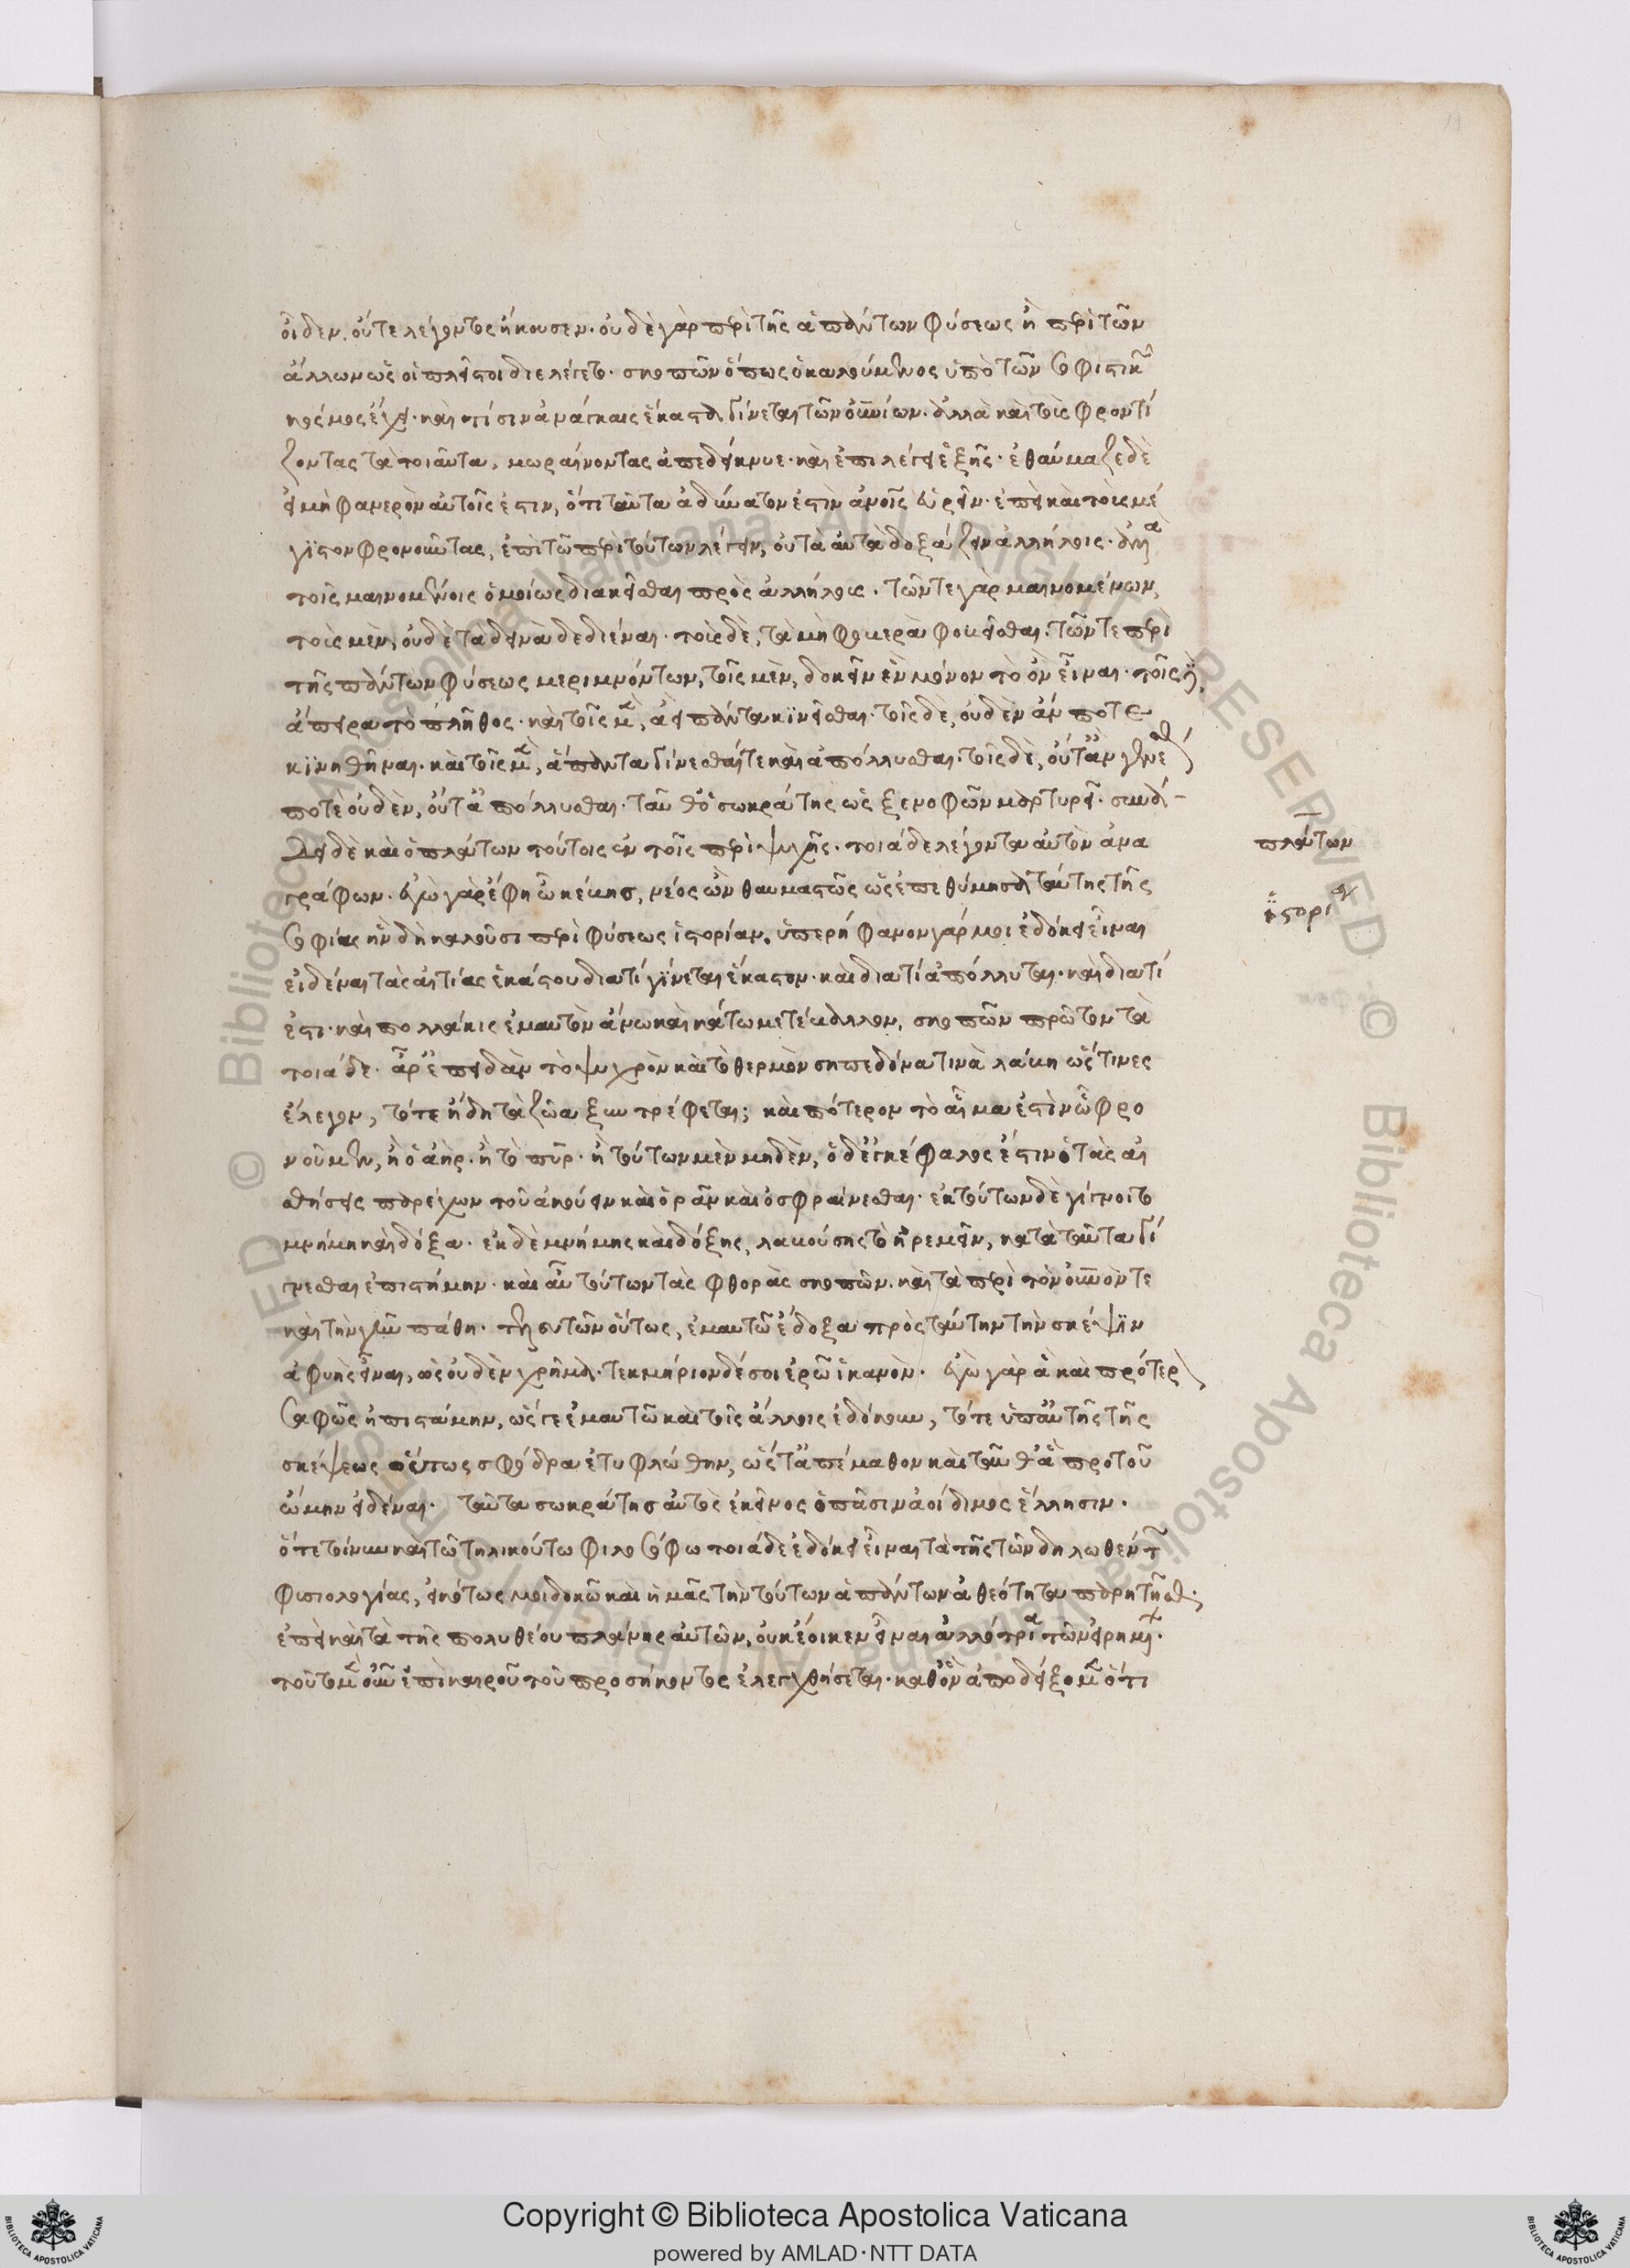 οἶδεν. οὔτε λέγοντος ἤκουσεν. οὐδὲ γὰρ περὶ τῆς ἁπάντων φύσεως ἢ περὶ τῶν
ἄλλων ὡς οἱ πλεῖστοι διελέγετο. σκοπῶν ὅπως ὁ καλούμενος ὑπὸ τῶν σοφιστῶν
κόσμος ἔχει. καὶ τίσιν ἀνάγκαις ἕκαστα γίνεται τῶν οὐρανίων. ἀλλὰ καὶ τοὺς φροντί
ζοντας τὰ τοιαῦτα, μωραίνοντας ἀπεδείκνυε. καὶ ἐπιλέγει ἑξῆς. ἐθαύμαζε δὲ
εἰ μὴ φανερὸν αὐτοῖς ἐστιν, ὅτι ταῦτα ἀδύνατον ἐστὶν ἀνοῖς εὑρεῖν. ἐπεὶ καὶ τοὺς μέ
γιστον φρονοῦντας, ἐπὶ τῶ περὶ τούτων λέγειν, οὐ τὰ αὐτὰ δοξάζειν ἀλλήλοις. ἀλλὰ
τοῖς μαινομένοις ὁμοίως διακεῖσθαι πρὸς ἀλλήλους. τῶν τε γὰρ μαινομένων,
τοὺς μὲν, οὐδὲ τὰ δεινὰ δεδιέναι. τοὺς δὲ, τὰ μὴ φοβερὰ φοβεῖσθαι. τῶν τε περὶ
τῆς πάντων φύσεως μεριμνόντων, τοῖς μὲν, δοκεῖν ἓν μόνον τὸ ὂν εἶναι. τοῖς δὲ,
ἄπειρα τὸ πλῆθος. καὶ τοῖς μὲν, ἀεὶ πάντα κινεῖσθαι. τοῖς δὲ, οὐδὲν ἄν ποτε
κινηθῆναι. καὶ τοῖς μὲν, ἅπαντα γίνεσθαί τε καὶ ἀπόλλυσθαι. τοῖς δὲ, οὔτ' ἂν γενέσθαι
ποτὲ οὐδὲν, οὔτ' ἀπόλλυσθαι. ταῦθ' ὁ σωκράτης ὡς ξενοφῶν μαρτυρεῖ. συνά
δει δὲ καὶ ὁ πλάτων τούτοις ἐν τοῖς περὶ ψυχῆς. τοιάδε λέγοντα αὐτὸν ἀνα
γράφων. ἐγὼ γὰρ ἔφη ὦ κέβης, νέος ὢν θαυμαστῶς ὡς ἐπεθύμησα ταύτης τῆς
σοφίας ἣν δὴ καλοῦσι περὶ φύσεως ἱστορίαν. ὑπερήφανον γάρ μοι ἐδόκει εἶναι
εἰδέναι τὰς αἰτίας ἑκάστου διατί γίνεται ἕκαστον. καὶ διατί ἀπόλλυται. καὶ διατί
ἐστι. καὶ πολλάκις ἐμαυτὸν ἄνω καὶ κάτω μετέβαλλον, σκοπῶν πρῶτον τὰ
τοιάδε. ἆρ' ἐπειδὰν τὸ ψυχρὸν καὶ τὸ θερμὸν σηπεδόνα τινὰ λάβη ὥς τινες
ἔλεγον, τότε ἤδη τὰ ζῶα ξυντρέφεται; καὶ πότερον τὸ αἷμα ἐστὶν ὧ φρο
νοῦμεν, ἢ ὁ ἀὴρ. ἢ τὸ πῦρ. ἢ τούτων μὲν μηδὲν, ὁ δ' ἐγκέφαλος ἐστιν ὁ τὰς αἰ
σθήσεις παρέχων τοῦ ἀκούειν καὶ ὁρᾶν καὶ ὀσφραίνεσθαι. ἐκ τούτων δὲ γίγνοιτο
μνήμη καὶ δόξα. ἐκ δὲ μνήμης καὶ δόξης, λαβούσης τὸ ἠρεμεῖν, κατὰ ταῦτα γί
γνεσθαι ἐπιστήμην. καὶ αὖ τούτων τὰς φθορὰς σκοπῶν. καὶ τὰ περὶ τὸν οὐρανόν τε
καὶ τὴν γῆν πάθη. τελευτῶν οὕτως, ἐμαυτῶ ἔδοξα πρὸς ταύτην τὴν σκέψιν
ἀφυὴς εἶναι, ὡς οὐδὲν χρῆμα. τεκμήριον δέ σοι ἐρῶ ἱκανὸν. ἐγὼ γὰρ ἃ καὶ πρότερον
σαφῶς ἠπιστάμην, ὥς γε ἐμαυτῶ καὶ τοῖς ἄλλοις ἐδόκουν, τότε ὑπ' αὐτῆς τῆς
σκέψεως οὕτως σφόδρα ἐτυφλώθην, ὥστ' ἀπέμαθον καὶ ταῦθ' ἃ προτοῦ
ὤμην εἰδέναι. ταῦτα σωκράτης αὐτὸς ἐκεῖνος ὁ πᾶσιν ἀοίδιμος ἕλλησιν.
ὅτε τοίνυν καὶ τῶ τηλικούτω φιλοσόφω τοιάδε ἐδόκει εἶναι τὰ τῆς τῶν δηλωθέντων
φυσιολογίας, εἰκότως μοι δοκῶ καὶ ἡμᾶς τὴν τούτων ἁπάντων ἀθεότητα παρῃτῆσθαι.
ἐπεὶ καὶ τὰ τῆς πολυθέου πλάνης αὐτῶν, οὐκ ἔοικεν εἶναι ἀλλότρια τῶν εἰρημένων.
τοῦτο μὲν οὖν ἐπὶ καιροῦ τοῦ προσήκοντος ἐλεγχθήσεται. καθ' ὃν ἀποδείξομεν ὅτι
πλάτων
ἱστορίαν